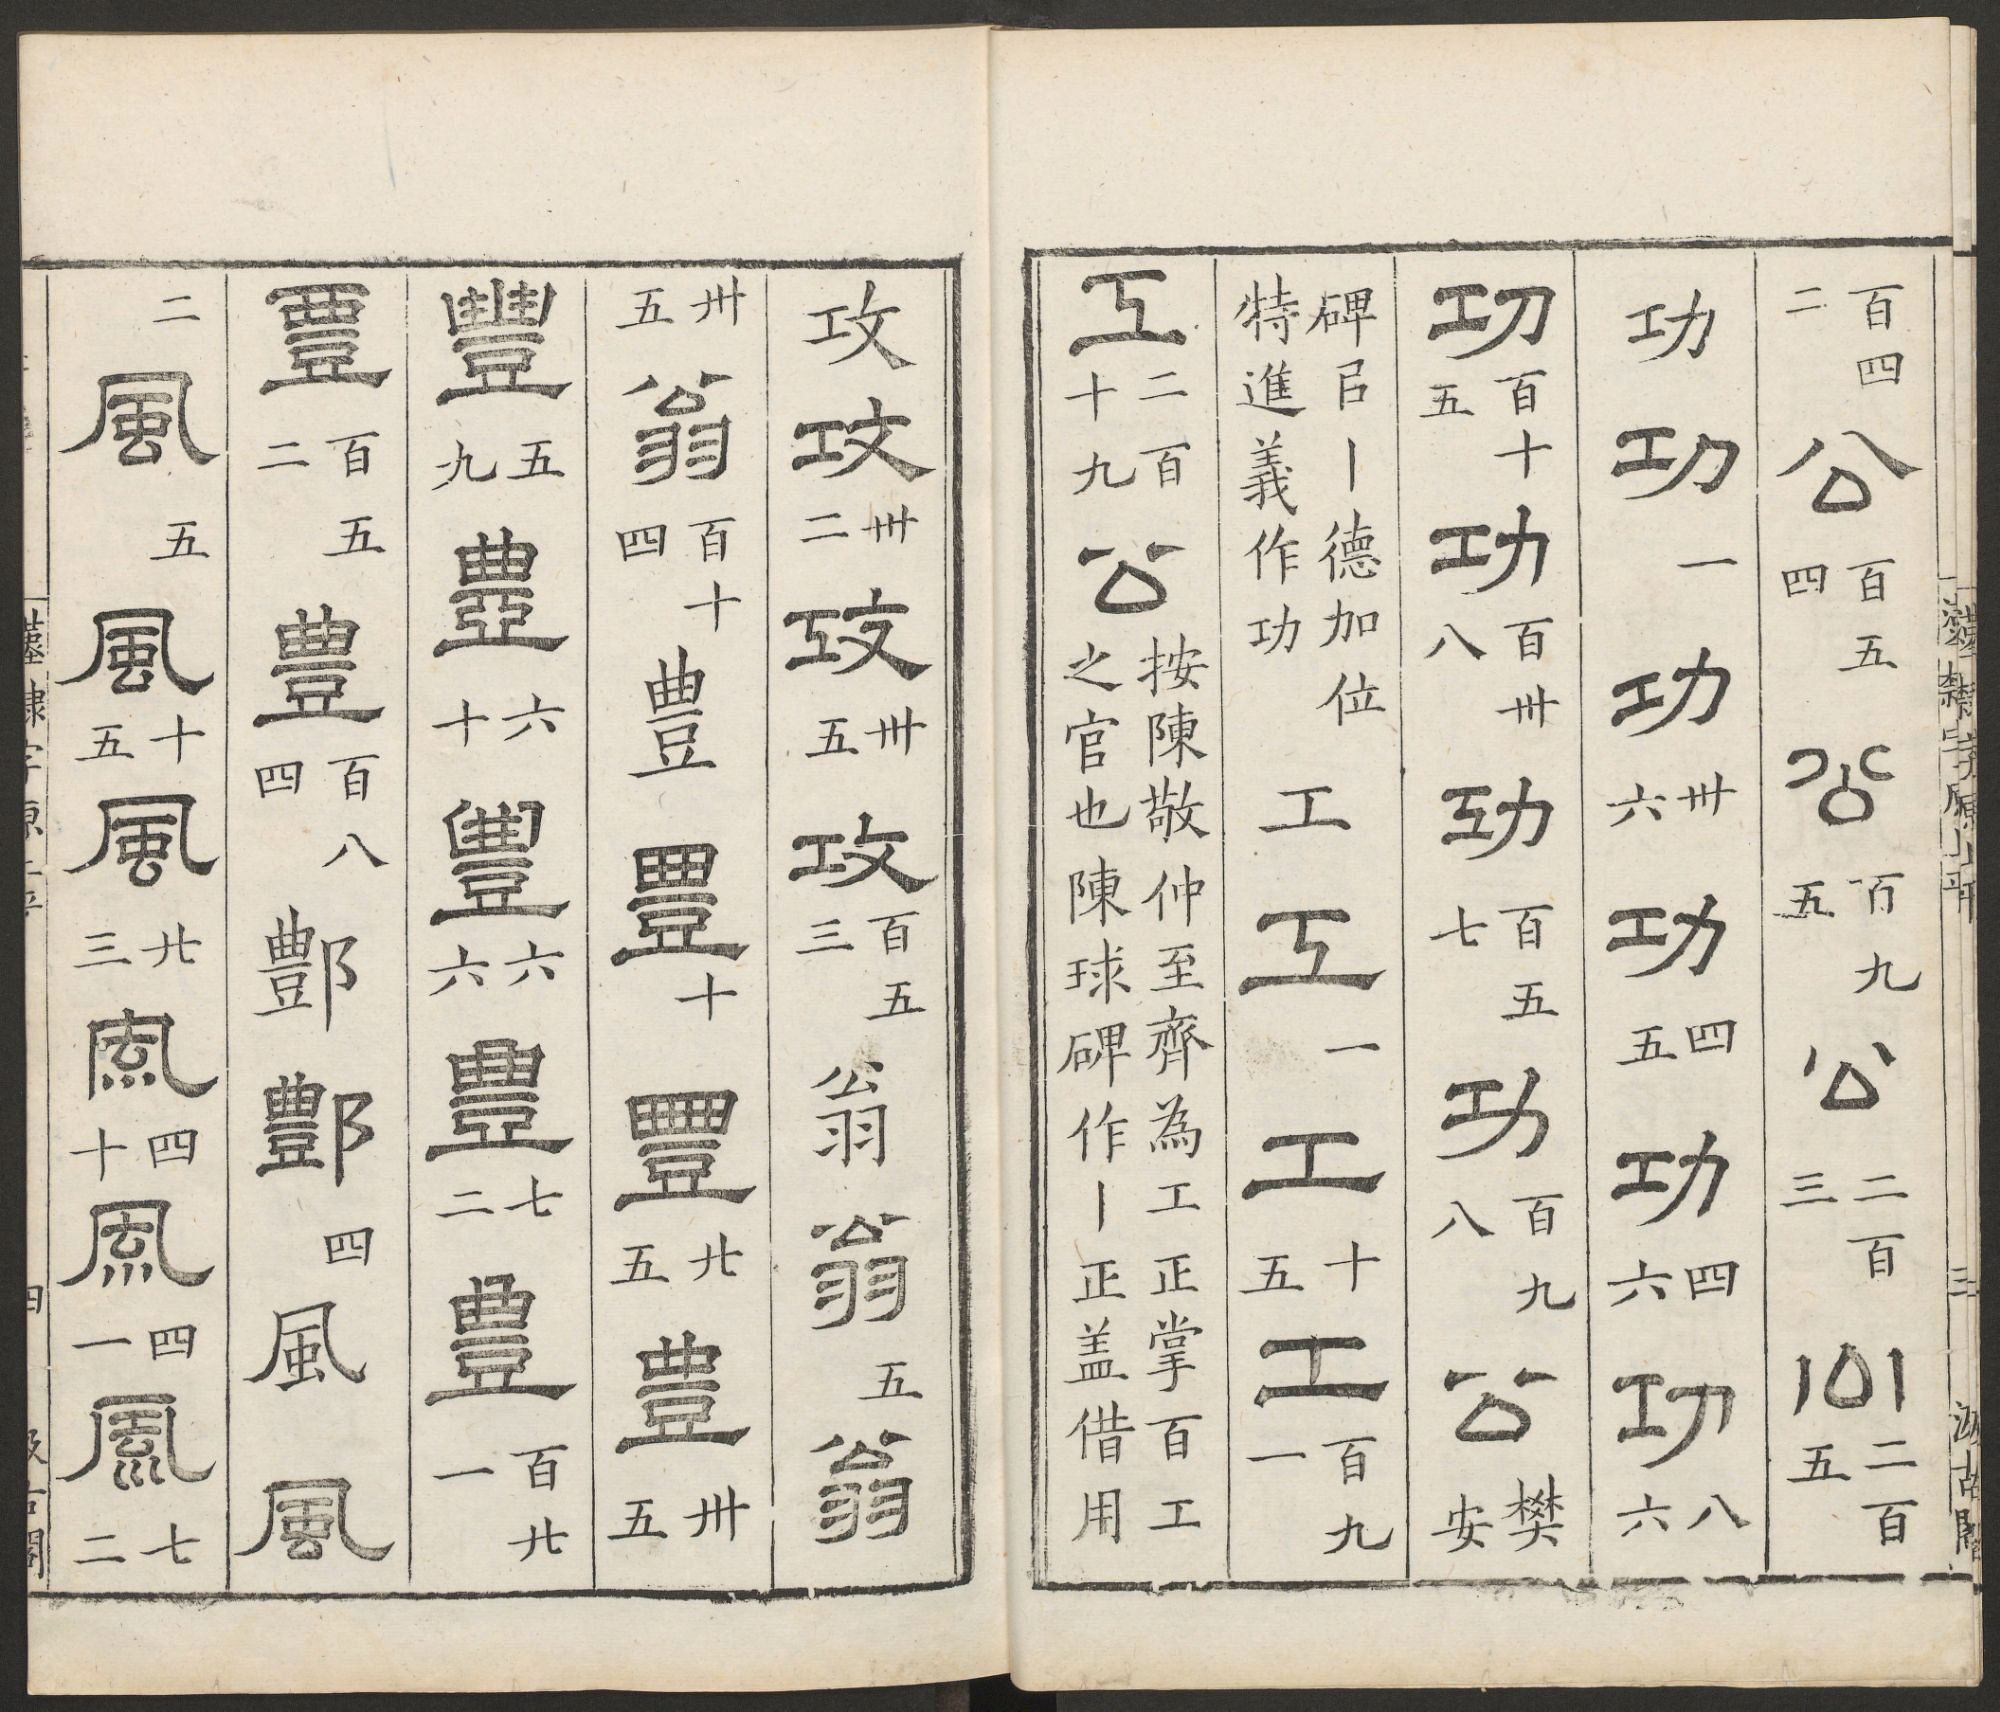 百四二公百五四公百九五公二百三公二百五
功功一功卅六功四五功四六功八六
功百十五功百卅八功百五七功百九八公樊安
碑㠯丨德加位特進義作功工工一工十五工百九一
工二百十九公按陳敬仲至齊為工正掌百工之官也陳球碑作丨正盖借用
攻攻卅二攻卅五攻百五三翁翁五翁
卅五翁百十四豐豐十豐廿五豐卅五
豐五九豐六十豐六六豐七二豐百廿一
豐百五二豐百八四酆酆四風風
二風五風十五風廿三風四十風四一風七二
漢隸字源上平
四
汲古閣